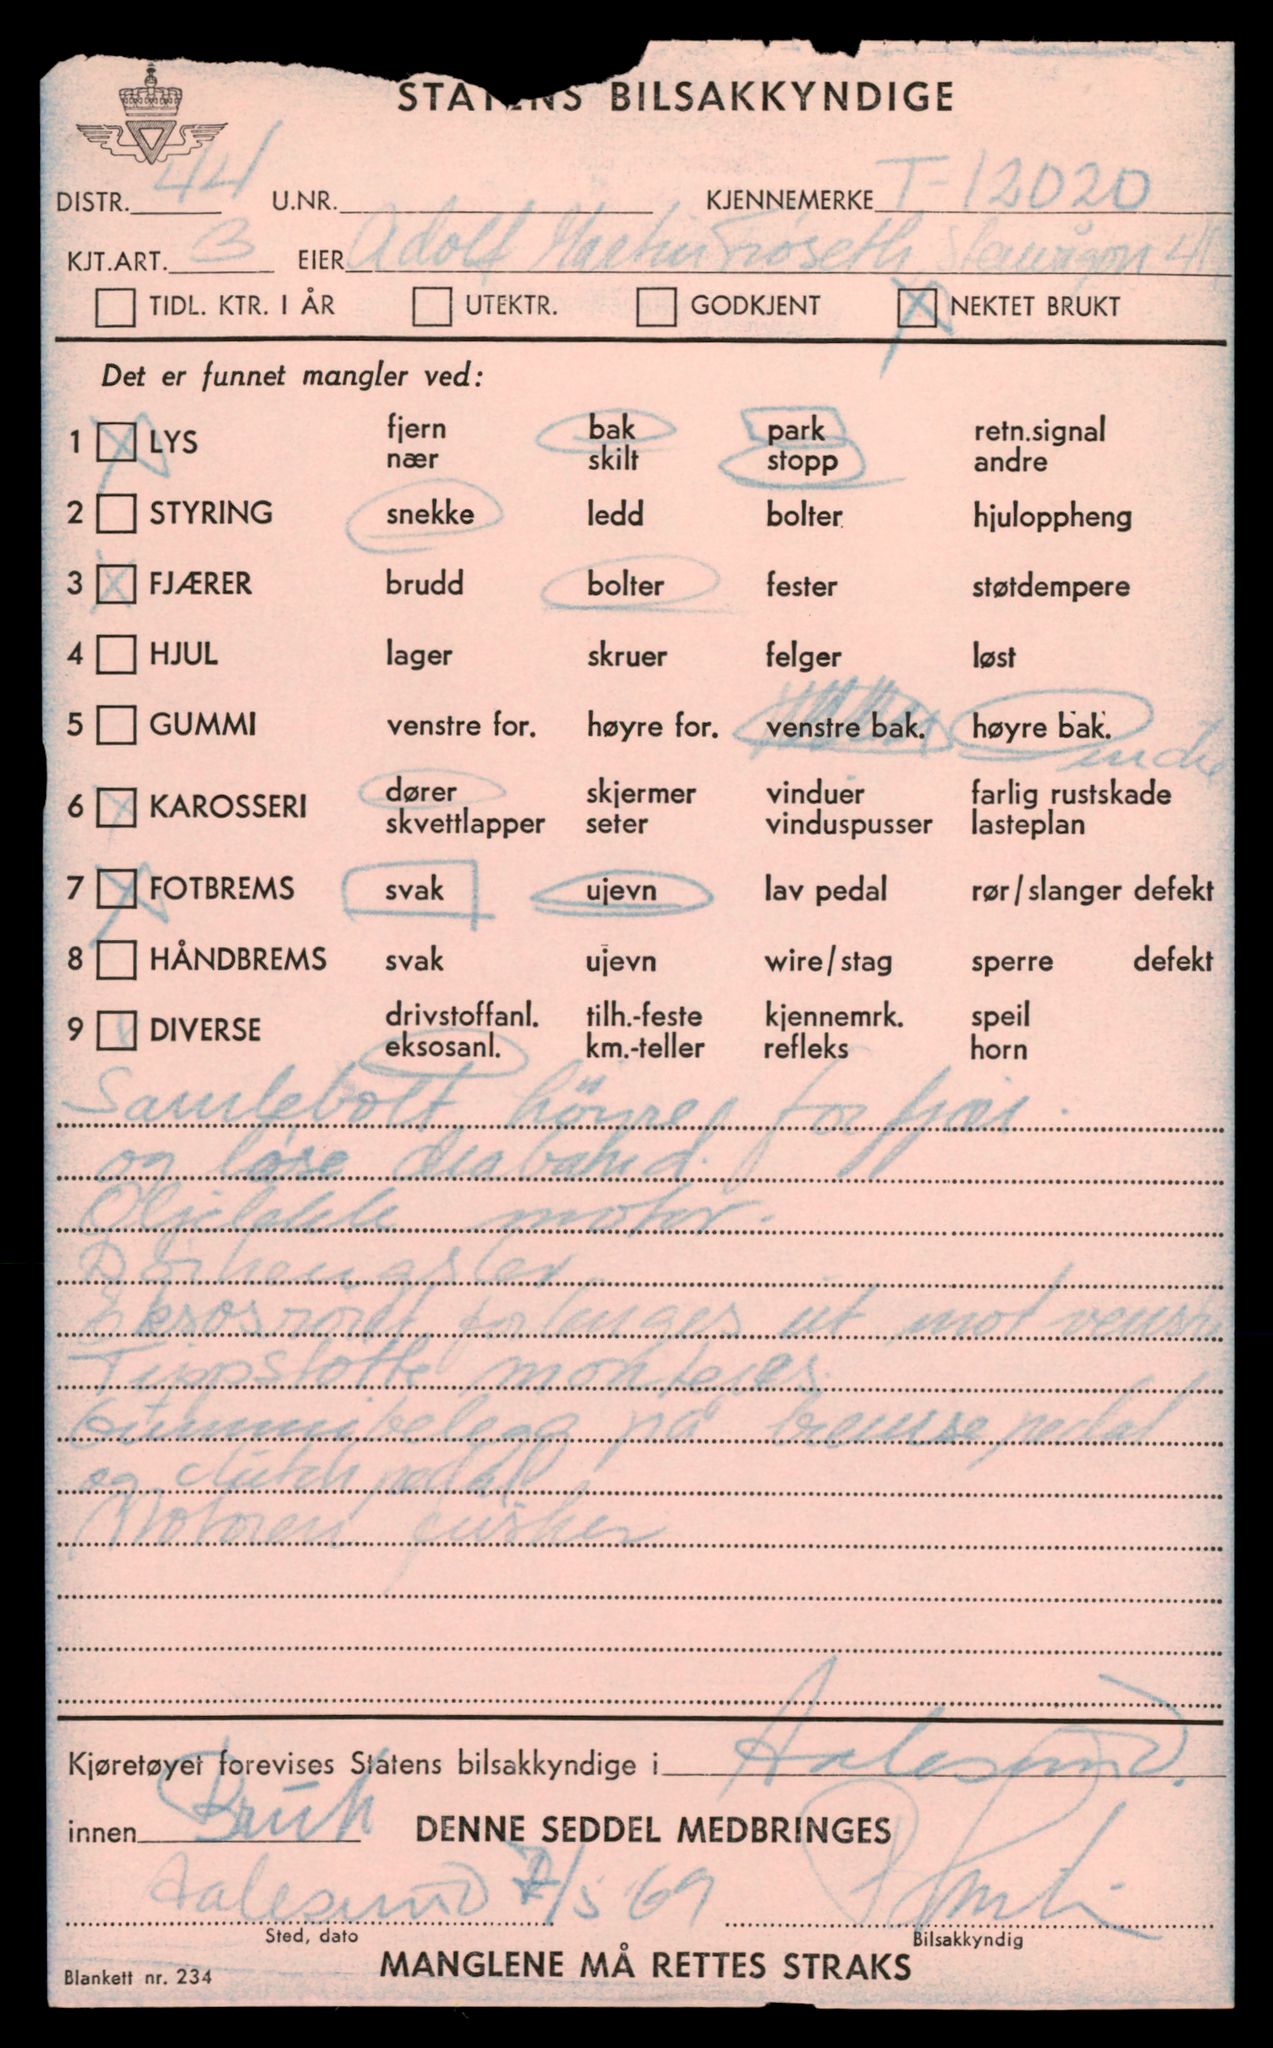 STATENS BILSAKKYNDIGE
DISTR. 44 U.NR. KJENNEMERKE T-12020
KJT.ART. 3 EIER Adolf Martin Frøseth
TIDL. KTR. I ÅR UTEKTR. GODKJENT NEKTET BRUKT
Det er funnet mangler ved:
1 LYS fjern bak park retn.signal
nær skilt stopp andre
2 STYRING snekke ledd bolter hjuloppheng
3 FJÆRER brudd bolter fester støtdempere
4 HJUL lager skruer felger løst
5 GUMMI venstre for. høyre for. venstre bak. høyre bak.
indre
6 KAROSSERI dører skjermer vinduer farlig rustskade
skvettlapper seter vinduspusser lasteplan
7 FOTBREMS svak ujevn lav pedal rør/slanger defekt
8 HÅNDBREMS svak ujevn wire/stag sperre defekt
9 DIVERSE drivstoffanl. tilh.-feste kjennemrk. speil
eksosanl. km.-teller refleks horn
Samlebolt høyre forfjær.
og løse
motor.
Dørhengsler
Eksosrøret forlenges ut mot venstre
Tippstøtte monteres.
Gummibelegg på bremsepedal
og clutch pedal.
Motoren fusker
Kjøretøyet forevises Statens bilsakkyndige i Aalesund.
innen Bruk DENNE SEDDEL MEDBRINGES
Aalesund 7/5 69
Sted, dato Bilsakkyndig
Blankett nr. 234 MANGLENE MÅ RETTES STRAKS